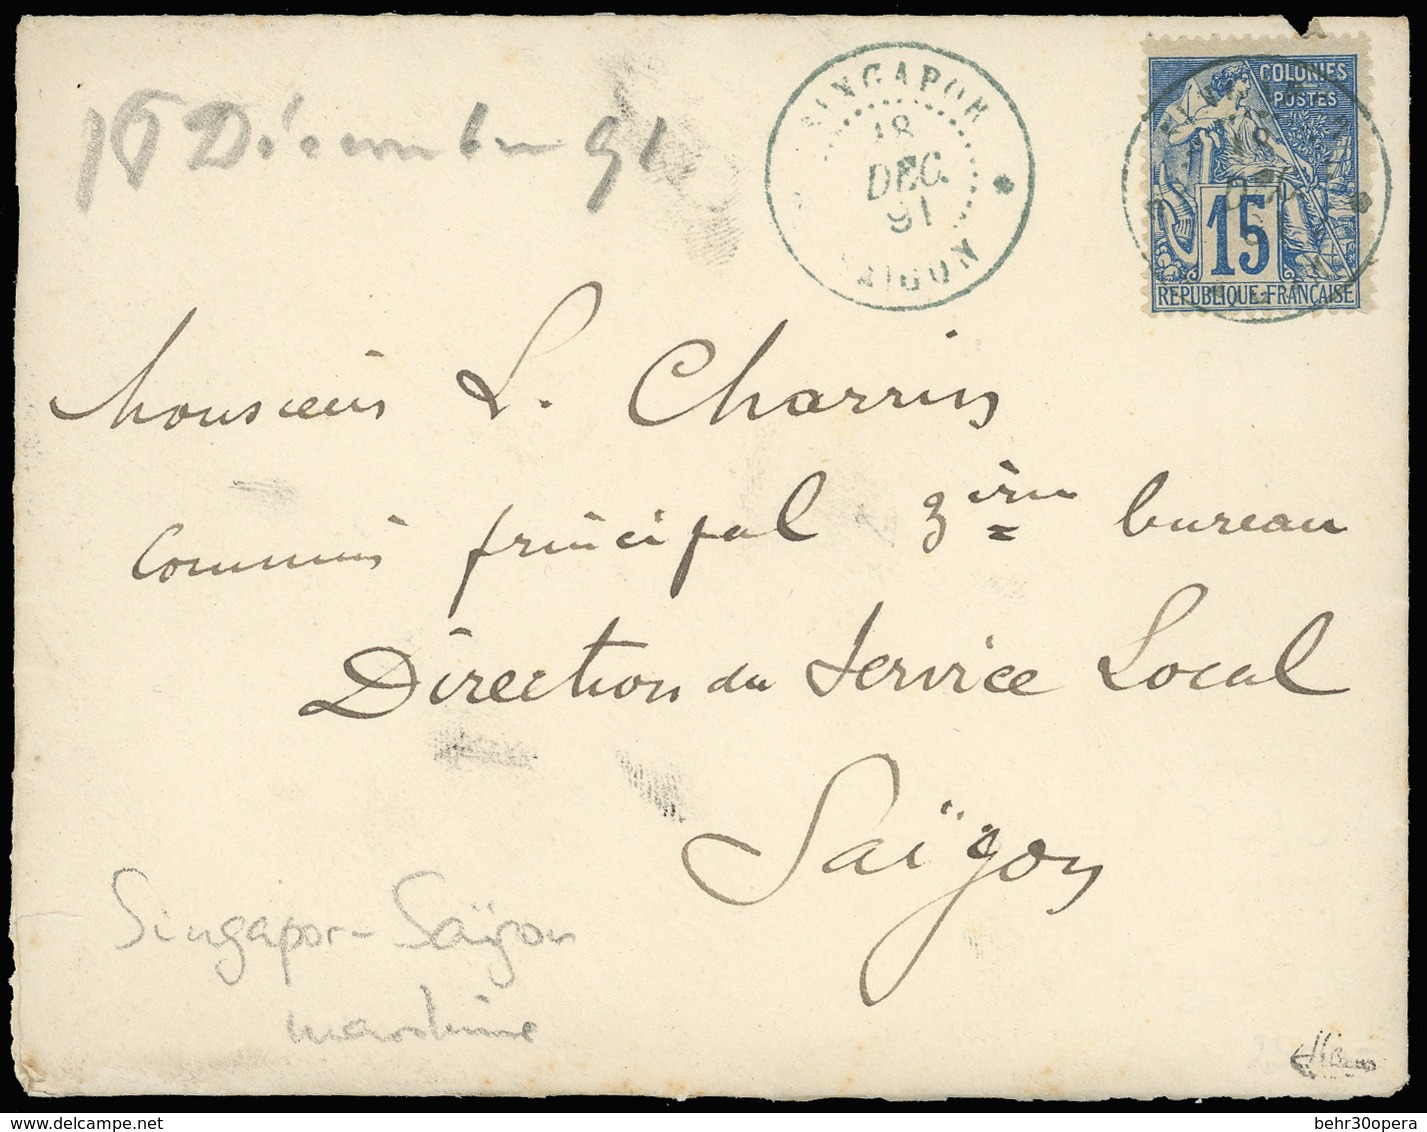 16 Décembre 91
SINGAPOR
18
DEC.
91
SAIGON
COLONIES
POSTES
15
REPUBLIQUE FRANÇAISE
Monsieur L. Charrin
Commis principal 3ième bureau
Direction du Service Local
Saïgon
Singapor-Saïgon
maritime
delcampe.net
behr30opera